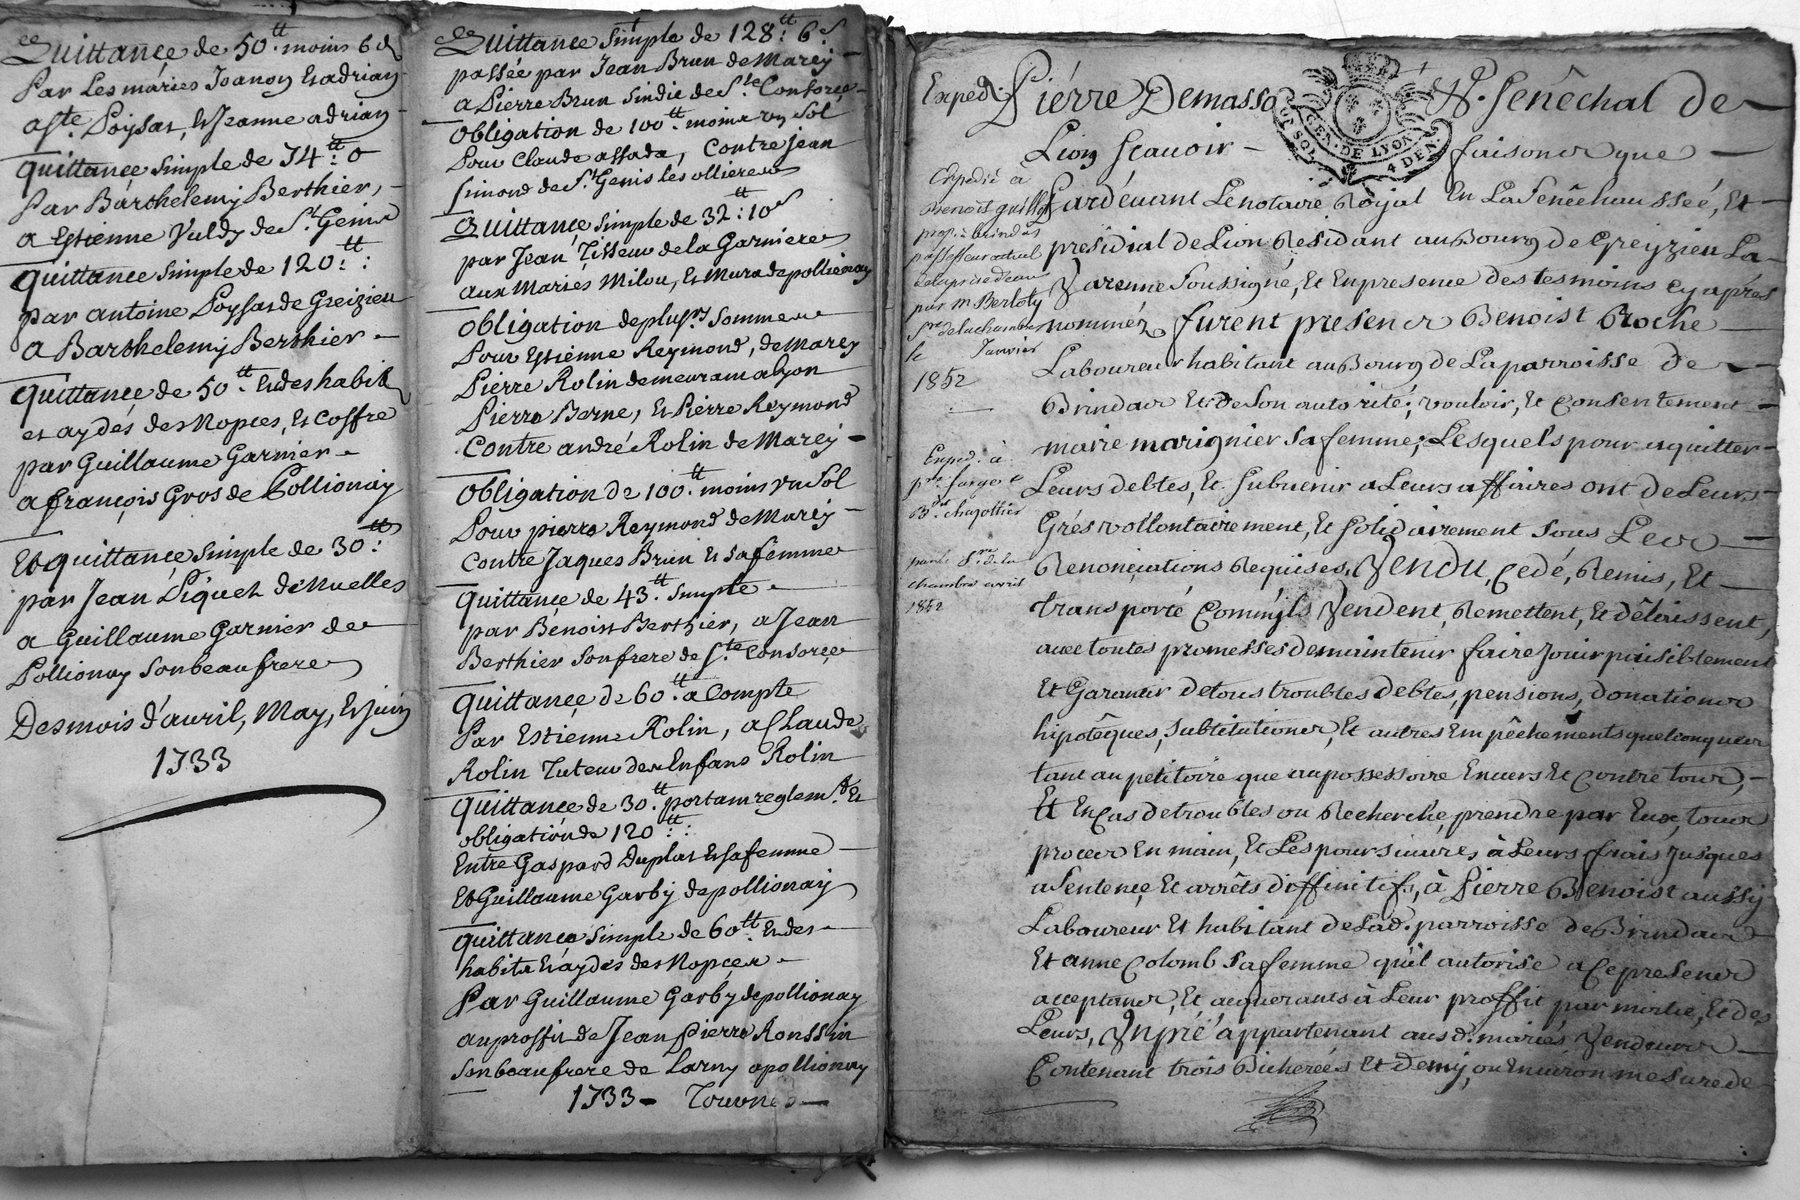 Quittançe de 50.tt moins 6d
Par Les mariés Joanon Et adrian
aste. Poysat, Et Jeanne adrian
quittançe simple de 74.tt 0
Par Barthelemy Berthier,
a Estienne Vuldy de St Genis
quittançe simple de 120.tt:
par antoine Poysat de Greizieu
a Barthelemy Berthier -
quittançe de 50.tt Et des habits
et aydés des Nopces, Et Coffre
par Guillaume Garnier -
a françois Gros de Pollionay
Et quittançe simple de 30.tt
par Jean Piquet de Nuelles
a Guillaume Garnier de
Pollionay Son beaufrere
Des mois d'auril, May, Et Juin
1733
Quittançe simple de 128.tt 6.s
passée par Jean Brun de Marcy -
a Pierre Brun Sindic de Ste Consorce -
Obligation de 100.tt moins un Sol
Pour Claude assada, Contre Jean
Simond de St Genis les ollieres
Quittançe simple de 32.tt: 10s
par Jean Tisseur de la Garniere
aux Mariés Milou, Et Mura de pollionay
Obligation de plusrs Sommes
Pour Estienne Reymond, de Marcy
Pierre Rolin demeurant a lyon
Pierre Berne, Et Pierre Reymond
Contre andré Rolin de Marcy -
Obligation de 100.tt moins un Sol
Pour pierre Reymond de Marcy -
Contre Jaques Brun Et Sa femme
quittançe de 43.tt Simple -
par Benoist Berthier, a Jean
Berthier Son frere de Ste Consorçe
quittançe de 60.tt a Compte
Par Estienne Rolin, a Claude
Rolin Tuteur des Enfans Rolin
quittançe de 30.tt portant reglemt. Et
obligation de 120.tt:
Entre Gaspard Duplat Et Sa femme -
Et Guillaume Garby de pollionay
quittance simple de 60.tt Et des -
habits Et aydés des Nopces -
Par Guillaume Garby de pollionay
au proffit de Jean Pierre Ronssin
Son beaufrere de Larny a pollionay
1733 - Tournés -
Exped. Pierre Demasso Sr. Senêchal de
GEN. DE LYON
SOL 4 DEN.
Lion Scauoir - faisons que -
Pardeuant Le notaire Royal En La Senêchaussée, Et -
presidial de Lion Residant au Bourg de Greyzieu La -
Varenne Soussigné, Et En presence des tesmoins cy aprés
nommez, furent presens Benoist Roche -
Laboureur habitant au Bourg de La parroisse de -
Brindas Et de Son autorité, vouloir, Et Consentement -
marie marignier Sa femme, Lesquels pour aquitter -
Leurs debtes, Et Subuenir a Leurs affaires ont de Leurs -
Grés vollontairement, Et Solidairement Sous Les -
Renonçiations Requises, Vendu, Cedé, Remis, Et -
transporté Comm'ils Vendent, Remettent, Et Délaissent,
auec toutes promesses de maintenir faire Jouir paisiblement
Et Garantir de tous troubles debtes, pensions, donations
hipotêques, Substitutions, Et autres Empêchements quelconques
tant au petitoire que au possessoire Enuers Et Contre tous, -
Et En Cas de troubles ou Recherche, prendre par Eux, tous
proces En main, Et Les poursuiures à Leurs frais Jusques
a Sentençe, Et arrêts diffinitifs, à Pierre Benoist aussy
Laboureur Et habitant de Lad. parroisse de Brindas
Et anne Colomb Sa femme qu'il autorise a Ce presens
acceptans, Et acquerants à Leur proffit par moitié, Et des
Leurs, Vn pré appartenant ausd. mariés Vendeurs -
Contenant trois Bicherées Et Demy, ou Enuiron mesure de
Expedié a
Benoist
proprie brindas
par Me Bertoly
Sre de la chambre
le Janvier
1852
Exped. à
par le Sre de la
chambre avril
1852